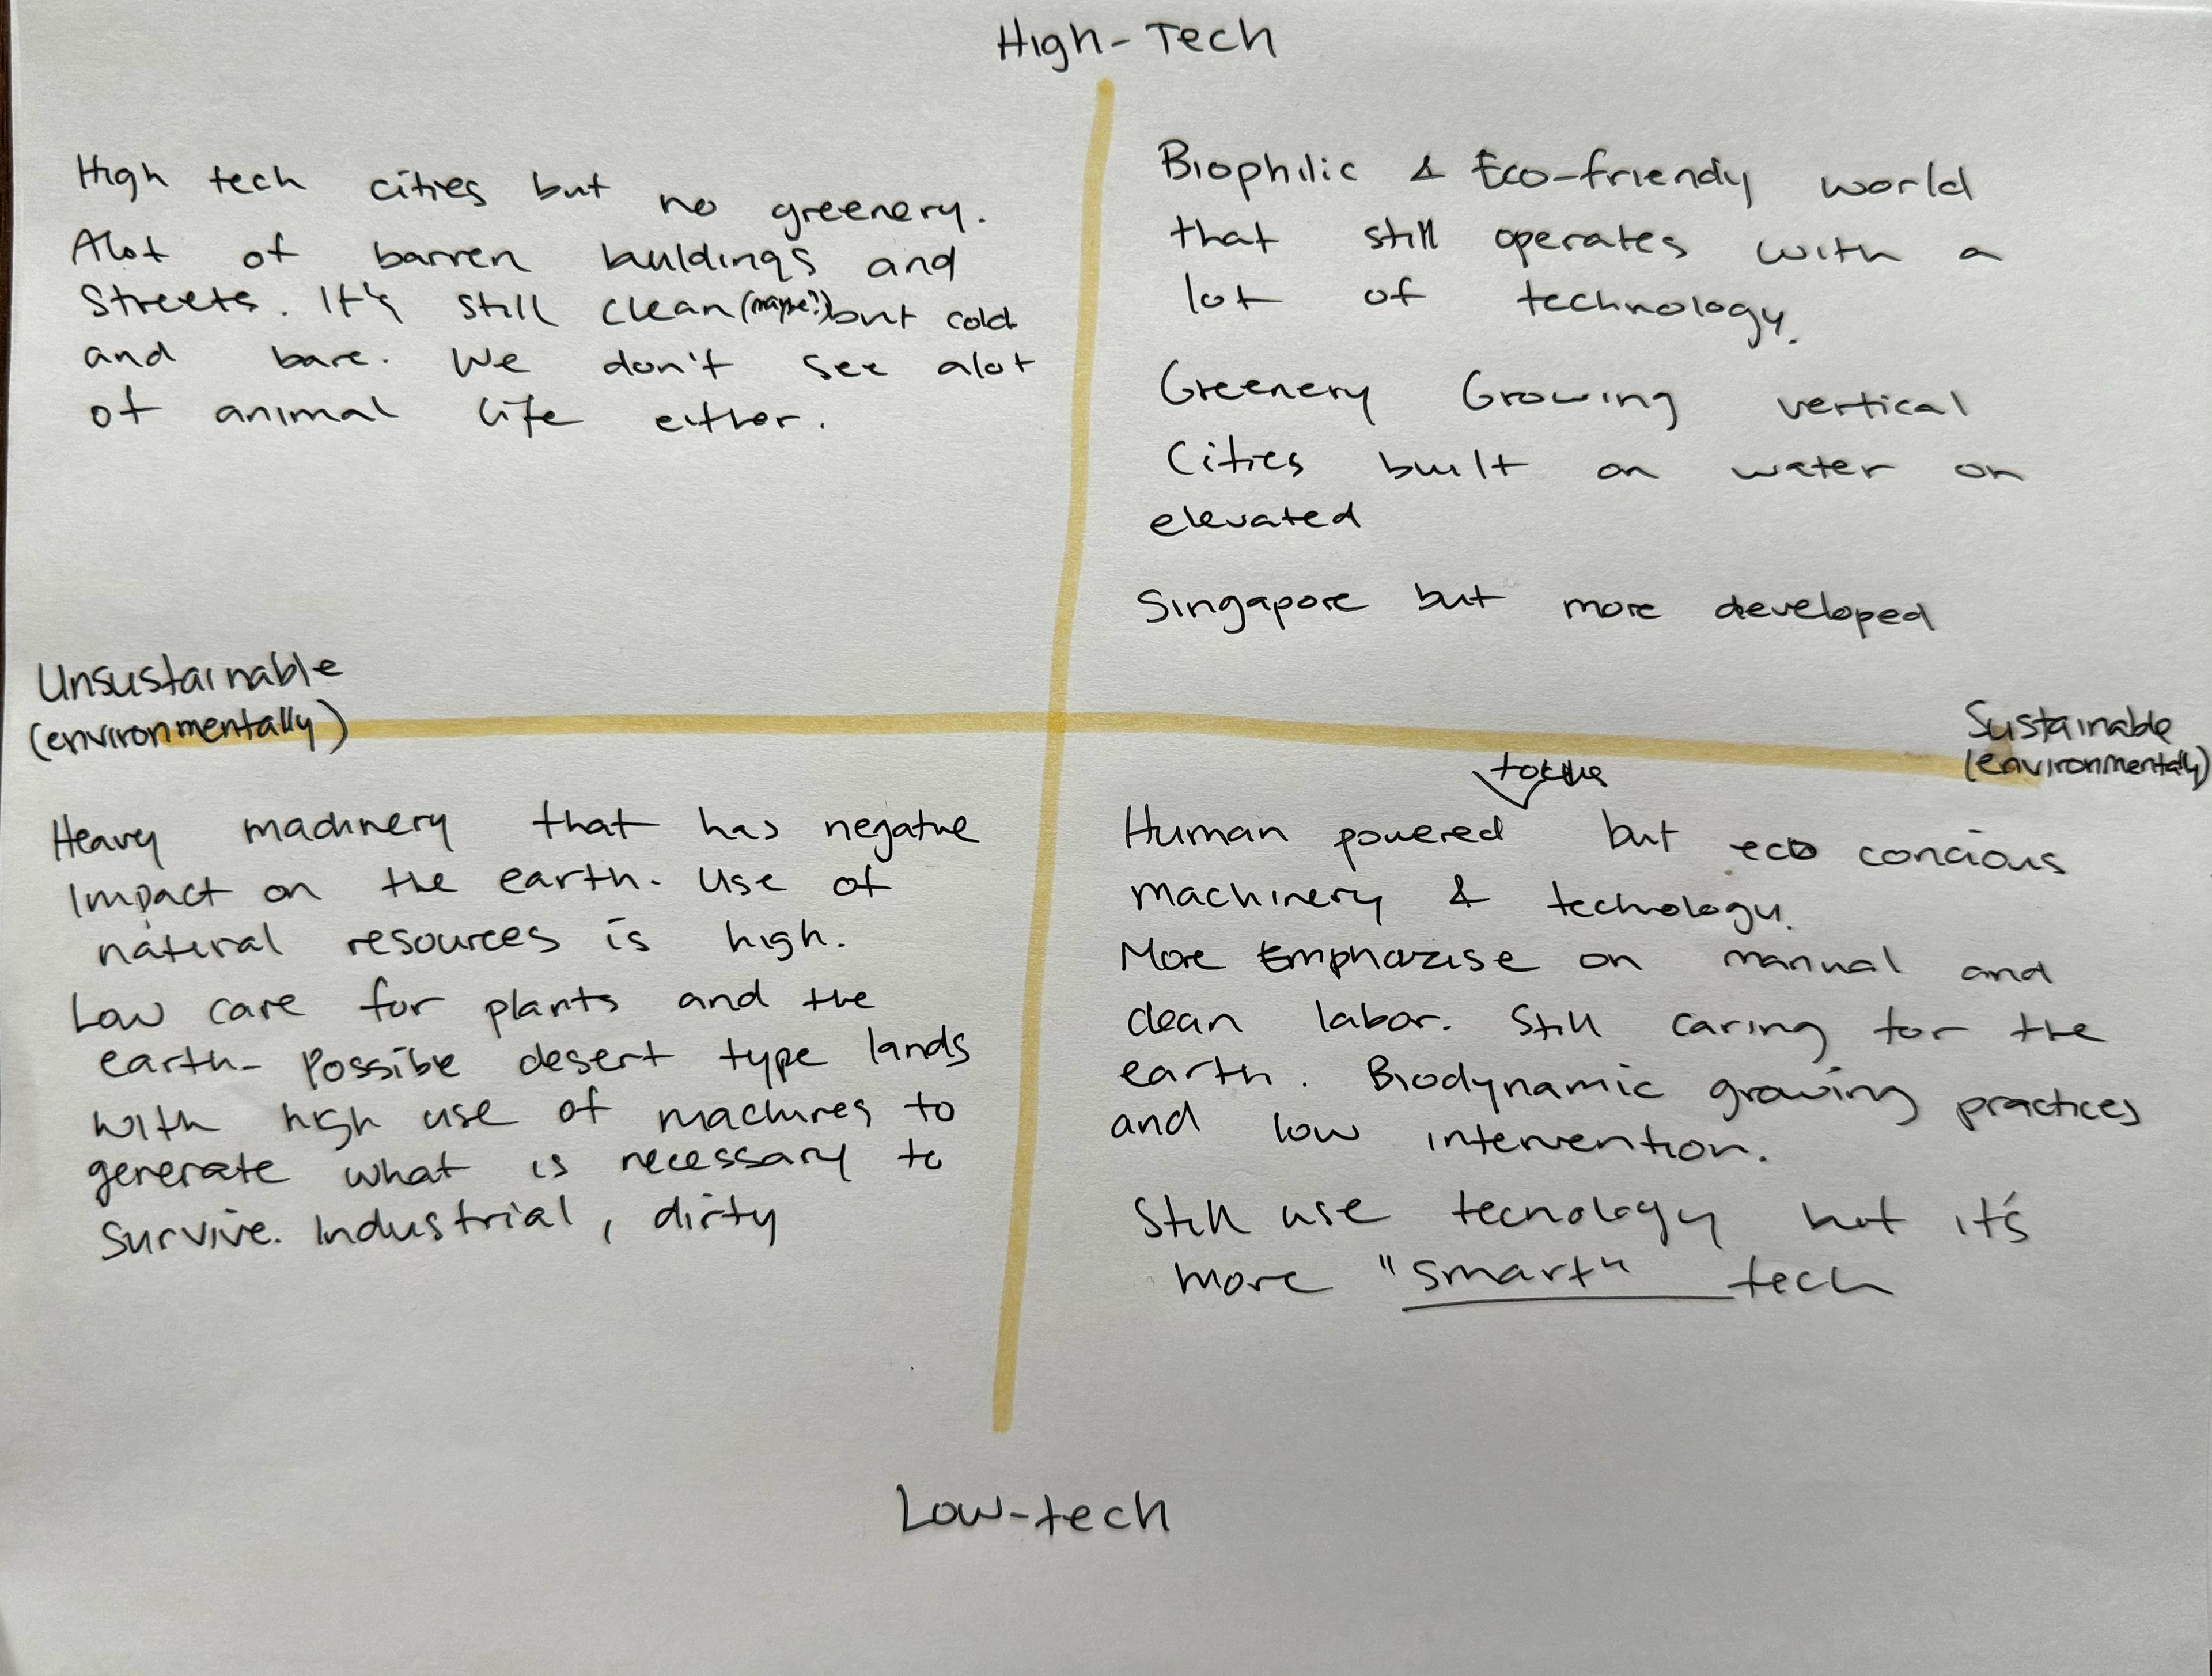 High-Tech
High tech cities but no greenery.
Alot of barren buildings and
streets. It's still clean (maybe?) but cold
and bare. We don't see alot
of animal life either.
Biophilic & Eco-friendly world
that still operates with a
lot of technology.
Greenery Growing vertical
Cities built on water or
elevated
Singapore but more developed
Unsustainable
(environmentally)
Sustainable
(environmentally)
Heavy machinery that has negative
impact on the earth. Use of
natural resources is high.
Low care for plants and the
earth- Possible desert type lands
with high use of machines to
generate what is necessary to
survive. Industrial, dirty
focus
Human powered but eco concious
machinery & technology.
More Empharzise on manual and
clean labor. Still caring for the
earth. Biodynamic growing practices
and low intervention.
Still use tecnology but it's
more "smart" tech
Low-tech